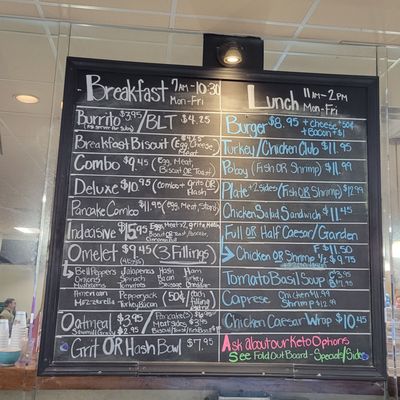 Breakfast 7AM-10:30
Mon-Fri
Burrito $3.95 / BLT $4.25
Breakfast Biscuit (Egg, Cheese,
Combo $9.45 (Egg, Meat,
Biscuit OR Toast)
Deluxe $10.95 (combo + Grits OR
Hash)
Pancake Combo $11.95 (egg, Meat,
Indecisive $15.95
Omelet $9.45 (3 Fillings)
Bell Peppers Jalapenos Hash Ham
Onions Spinach Bacon Turkey
Mushrooms Tomatoes
American Pepperjack (50¢ / each
Mozzarella filling
Oatmeal $3.95 / Pancake(s)
$2.95 Meat Sides
Grit OR Hash Bowl $7.95
Lunch 11AM-2PM
Mon-Fri
Burger $8.95 + Cheese + 50¢
+ Bacon + $1
Turkey/Chicken Club $11.95
Poboy (Fish OR Shrimp) $11.99
Plate +2 sides (Fish OR Shrimp) $12.99
Chicken Salad Sandwich $11.45
Full OR Half Caesar/Garden
Chicken OR Shrimp F $11.50
½ $9.75
Tomato Basil Soup
Caprese Chicken $11.99
Shrimp
Chicken Caesar Wrap $10.45
Ask about our Keto Options
See Fold Out Board - Specials/Side